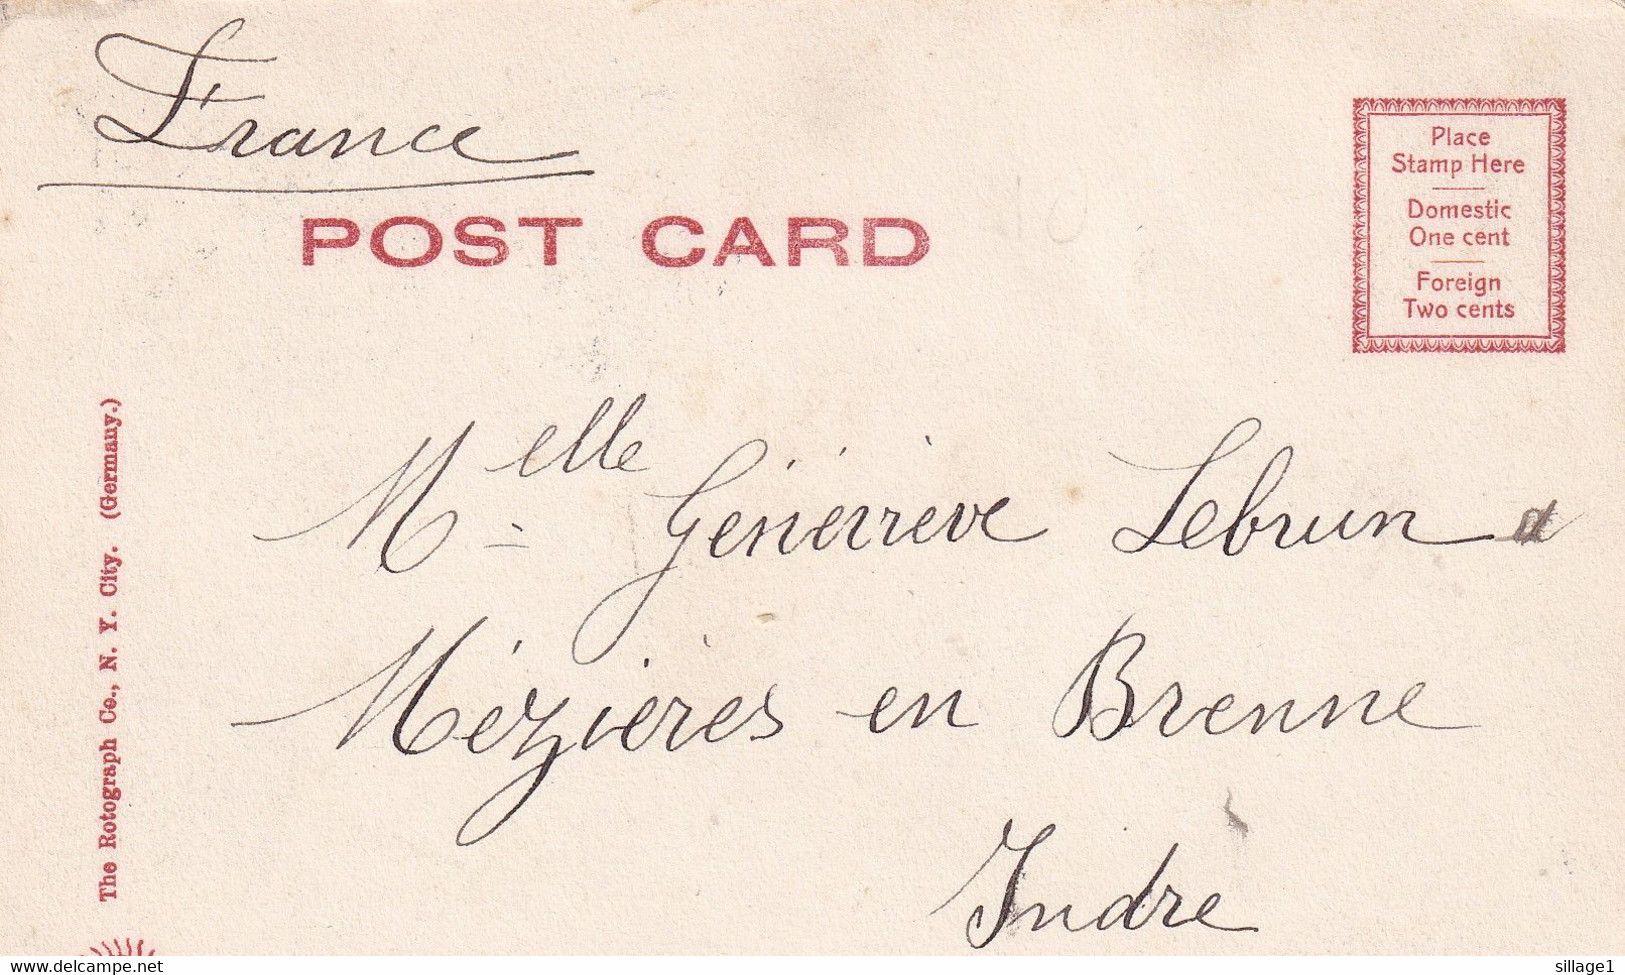 France
POST CARD
Place
Stamp Here
Domestic
One cent
Foreign
Two cents
Melle Généviève Lebrun
Mézières en Brenne
Indre
The Rotograph Co., N. Y. City. (Germany.)
www.delcampe.net
sillage1